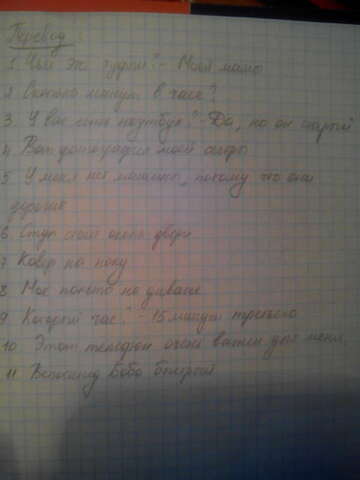 Перевод
1 Чьи это туфли? - Моей мамы
2 Сколько минут в часе?
3. У вас есть ноутбук? - Да, но он старый
4 Вот фотография моей
5 У меня нет машины, потому что они
дорогие
6 Стул стоит около двери
7 Ковер на полу
8 Мое пальто на диване
9 Который час? - 15 минут третьего
10 Этот телефон очень важен для меня,
11 Велосипед Боба